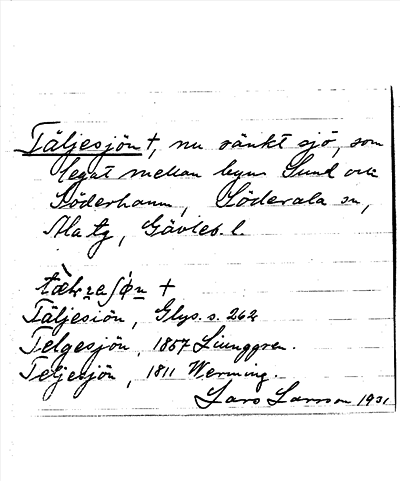 Täljesjön †, nu sänkt sjö, som
legat mellan byn Sund och
Söderhamn, Söderala sn,
Ala tg, Gävleb. l.
Täljesiön, Glys. s. 262
Telgesjön, 1857 Ljunggren.
Teljesjön, 1811 Werming.
Lars Larsson 1931